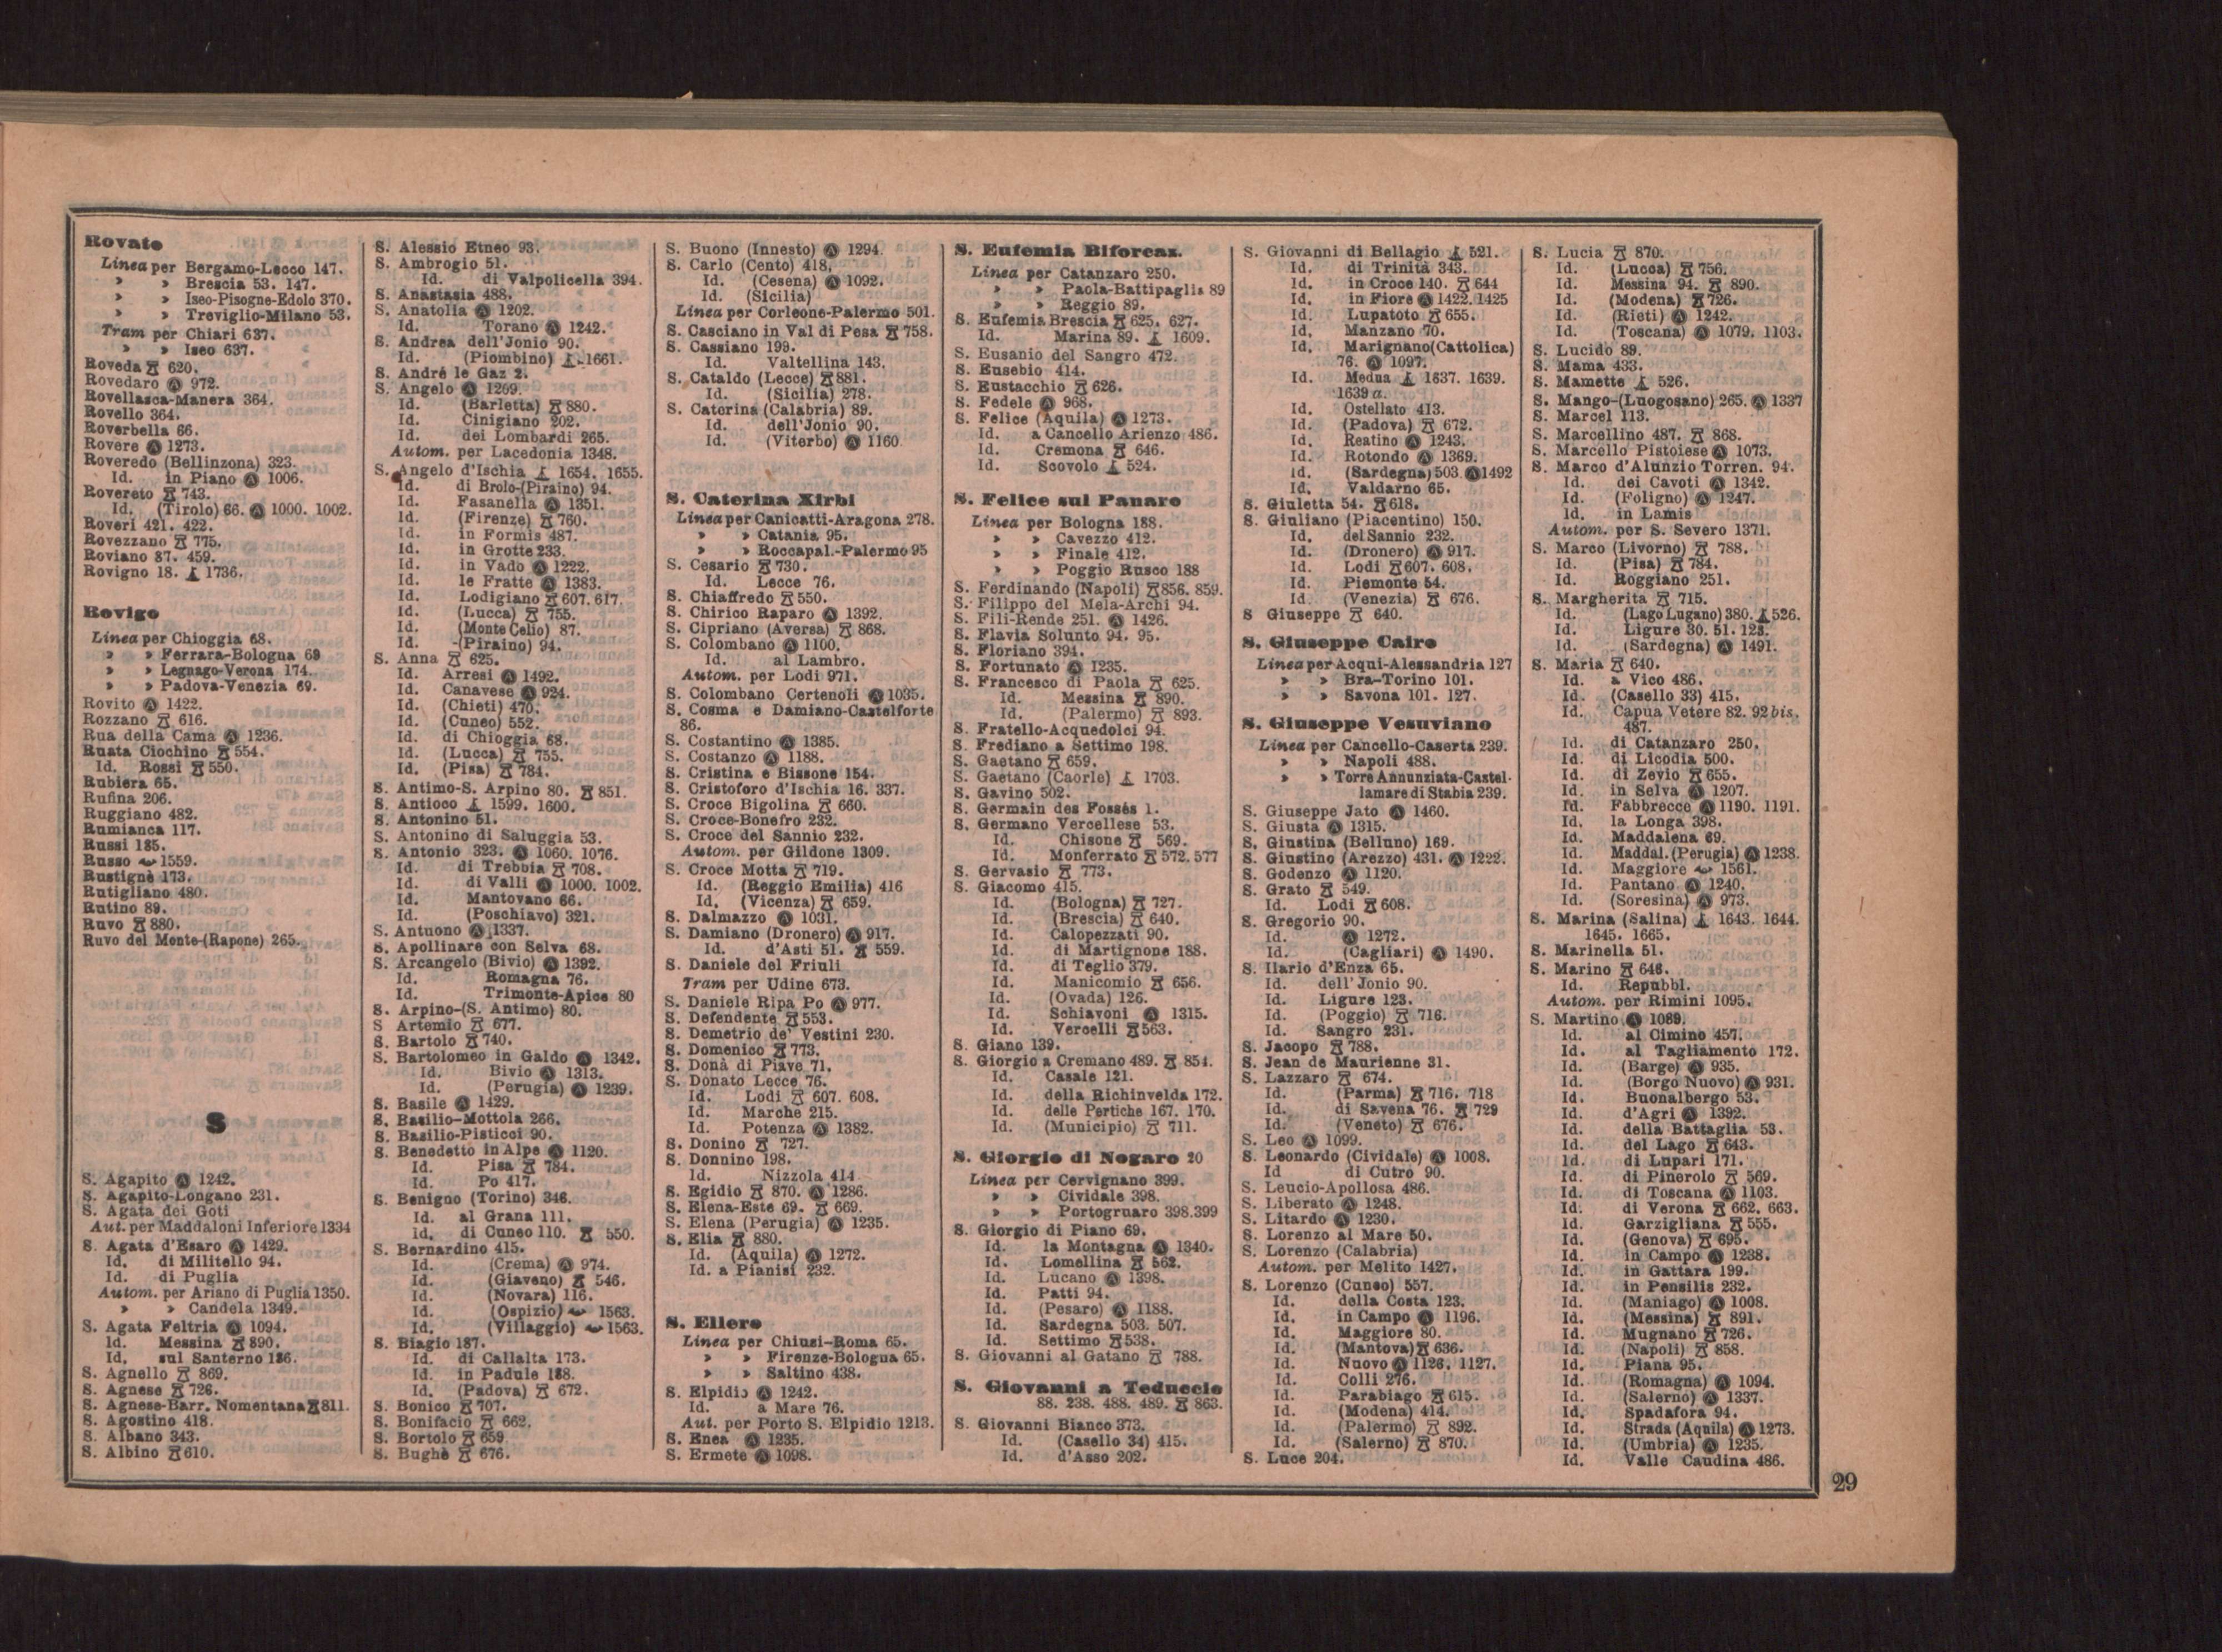 Rovato
Linea per Bergamo-Lecco 147.
» » Brescia 53. 147.
» » Iseo-Pisogne-Edolo 370.
» » Treviglio-Milano 53.
Tram per Chiari 637.
» » Iseo 637.
Roveda 620.
Rovedaro Ⓐ 972.
Rovellasca-Manera 364.
Rovello 364.
Roverbella 66.
Rovere Ⓐ 1273.
Roveredo (Bellinzona) 323.
Id. in Piano Ⓐ 1006.
Rovereto 743.
Id. (Tirolo) 66. Ⓐ 1000. 1002.
Roveri 421. 422.
Rovezzano 775.
Roviano 87. 459.
Rovigno 18. 1736.
Rovigo
Linea per Chioggia 68.
» » Ferrara-Bologna 69
» » Legnago-Verona 174.
» » Padova-Venezia 69.
Rovito Ⓐ 1422.
Rozzano 616.
Rua della Cama Ⓐ 1236.
Ruata Ciochino 554.
Id. Rossi 550.
Rubiera 65.
Rufina 206.
Ruggiano 482.
Rumianca 117.
Russi 185.
Russo 1559.
Rustignè 173.
Rutigliano 480.
Rutino 89.
Ruvo 880.
Ruvo del Monte-(Rapone) 265.
S
S. Agapito Ⓐ 1242.
S. Agapito-Longano 231.
S. Agata dei Goti
Aut. per Maddaloni Inferiore 1334
S. Agata d'Esaro Ⓐ 1429.
Id. di Militello 94.
Id. di Puglia
Autom. per Ariano di Puglia 1350.
» » Candela 1349.
S. Agata Feltria Ⓐ 1094.
Id. Messina 890.
Id. sul Santerno 186.
S. Agnello 869.
S. Agnese 726.
S. Agnese-Barr. Nomentana 811.
S. Agostino 418.
S. Albano 343.
S. Albino 610.
S. Alessio Etneo 93.
S. Ambrogio 51.
Id. di Valpolicella 394.
S. Anastasia 488.
S. Anatolia Ⓐ 1202.
Id. Torano Ⓐ 1242.
S. Andrea dell'Jonio 90.
Id. (Piombino) 1661.
S. André le Gaz 2.
S. Angelo Ⓐ 1269.
Id. (Barletta) 880.
Id. Cinigiano 202.
Id. dei Lombardi 265.
Autom. per Lacedonia 1348.
S. Angelo d'Ischia 1654. 1655.
Id. di Brolo-(Piraino) 94.
Id. Fasanella Ⓐ 1351.
Id. (Firenze) 760.
Id. in Formis 487.
Id. in Grotte 233.
Id. in Vado Ⓐ 1222.
Id. le Fratte Ⓐ 1383.
Id. Lodigiano 607. 617.
Id. (Lucca) 755.
Id. (Monte Celio) 87.
Id. (Piraino) 94.
S. Anna 625.
Id. Arresi Ⓐ 1492.
Id. Canavese Ⓐ 924.
Id. (Chieti) 470.
Id. (Cuneo) 552.
Id. di Chioggia 68.
Id. (Lucca) 755.
Id. (Pisa) 784.
S. Antimo-S. Arpino 80. 851.
S. Antioco 1599. 1600.
S. Antonino 51.
S. Antonino di Saluggia 53.
S. Antonio 323. Ⓐ 1060. 1076.
Id. di Trebbia 708.
Id. di Valli Ⓐ 1000. 1002.
Id. Mantovano 66.
Id. (Poschiavo) 321.
S. Antuono Ⓐ 1337.
S. Apollinare con Selva 68.
S. Arcangelo (Bivio) Ⓐ 1392.
Id. Romagna 76.
Id. Trimonte-Apice 80
S. Arpino-(S. Antimo) 80.
S Artemio 677.
S. Bartolo 740.
S. Bartolomeo in Galdo Ⓐ 1342.
Id. Bivio Ⓐ 1313.
Id. (Perugia) Ⓐ 1239.
S. Basile Ⓐ 1429.
S. Basilio-Mottola 266.
S. Basilio-Pisticci 90.
S. Benedetto in Alpe Ⓐ 1120.
Id. Pisa 784.
Id. Po 417.
S. Benigno (Torino) 346.
Id. al Grana 111.
Id. di Cuneo 110. 550.
S. Bernardino 415.
Id. (Crema) Ⓐ 974.
Id. (Giaveno) 546.
Id. (Novara) 116.
Id. (Ospizio) 1563.
Id. (Villaggio) 1563.
S. Biagio 187.
Id. di Callalta 173.
Id. in Padule 188.
Id. (Padova) 672.
S. Bonico 707.
S. Bonifacio 662.
S. Bortolo 659
S. Bughè 676.
S. Buono (Innesto) Ⓐ 1294.
S. Carlo (Cento) 418.
Id. (Cesena) Ⓐ 1092.
Id. (Sicilia)
Linea per Corleone-Palermo 501.
S. Casciano in Val di Pesa 758.
S. Cassiano 199.
Id. Valtellina 143.
S. Cataldo (Lecce) 881.
Id. (Sicilia) 278.
S. Caterina (Calabria) 89.
Id. dell'Jonio 90.
Id. (Viterbo) Ⓐ 1160
S. Caterina Xirbi
Linea per Canicatti-Aragona 278.
» » Catania 95.
» » Roccapal.-Palermo 95
S. Cesario 730.
Id. Lecce 76.
S. Chiaffredo 550.
S. Chirico Raparo Ⓐ 1392.
S. Cipriano (Aversa) 868.
S. Colombano Ⓐ 1100.
Id. al Lambro.
Autom. per Lodi 971.
S. Colombano Certenoli Ⓐ 1035.
S. Cosma e Damiano-Castelforte
86.
S. Costantino Ⓐ 1385.
S. Costanzo Ⓐ 1188.
S. Cristina e Bissone 154.
S. Cristoforo d'Ischia 16. 337.
S. Croce Bigolina 660.
S. Croce-Bonefro 232.
S. Croce del Sannio 232.
Autom. per Gildone 1309.
S. Croce Motta 719.
Id. (Reggio Emilia) 416
Id. (Vicenza) 659.
S. Dalmazzo Ⓐ 1031.
S. Damiano (Dronero) Ⓐ 917.
Id. d'Asti 51. 559.
S. Daniele del Friuli
Tram per Udine 673.
S. Daniele Ripa Po Ⓐ 977.
S. Defendente 553.
S. Demetrio de' Vestini 230.
S. Domenico 773.
S. Donà di Piave 71.
S. Donato Lecce 76.
Id. Lodi 607. 608.
Id. Marche 215.
Id. Potenza Ⓐ 1382.
S. Donino 727.
S. Donnino 198.
Id. Nizzola 414
S. Egidio 870. Ⓐ 1286.
S. Elena-Este 69. 669.
S. Elena (Perugia) Ⓐ 1235.
S. Elia 880.
Id. (Aquila) Ⓐ 1272.
Id. a Pianisi 232.
S. Ellero
Linea per Chiusi-Roma 65.
» » Firenze-Bologna 65.
» » Saltino 438.
S. Elpidio Ⓐ 1242.
Id. a Mare 76.
Aut. per Porto S. Elpidio 1213.
S. Enea Ⓐ 1235.
S. Ermete Ⓐ 1098.
S. Eufemia Biforcaz.
Linea per Catanzaro 250.
» » Paola-Battipaglia 89
» » Reggio 89.
S. Eufemia Brescia 625. 627.
Id. Marina 89. 1609.
S. Eusanio del Sangro 472.
S. Eusebio 414.
S. Eustacchio 626.
S. Fedele Ⓐ 968.
S. Felice (Aquila) Ⓐ 1273.
Id. a Cancello Arienzo 486.
Id. Cremona 646.
Id. Scovolo 524.
S. Felice sul Panaro
Linea per Bologna 188.
» » Cavezzo 412.
» » Finale 412.
» » Poggio Rusco 188
S. Ferdinando (Napoli) 856. 859.
S. Filippo del Mela-Archi 94.
S. Fili-Rende 251. Ⓐ 1426.
S. Flavia Solunto 94. 95.
S. Floriano 394.
S. Fortunato Ⓐ 1235.
S. Francesco di Paola 625.
Id. Messina 890.
Id. (Palermo) 893.
S. Fratello-Acquedolci 94.
S. Frediano a Settimo 198.
S. Gaetano 659.
S. Gaetano (Caorle) 1703.
S. Gavino 502.
S. Germain des Fossés 1.
S. Germano Vercellese 53.
Id. Chisone 569.
Id. Monferrato 572. 577
S. Gervasio 773.
S. Giacomo 415.
Id. (Bologna) 727.
Id. (Brescia) 640.
Id. Calopezzati 90.
Id. di Martignone 188.
Id. di Teglio 379.
Id. Manicomio 656.
Id. (Ovada) 126.
Id. Schiavoni Ⓐ 1315.
Id. Vercelli 563.
S. Giano 139.
S. Giorgio a Cremano 489. 854.
Id. Casale 121.
Id. della Richinvelda 172.
Id. delle Pertiche 167. 170.
Id. (Municipio) 711.
S. Giorgio di Nogaro 20
Linea per Cervignano 399.
» » Cividale 398.
» » Portogruaro 398.399
S. Giorgio di Piano 69.
Id. la Montagna Ⓐ 1340.
Id. Lomellina 562.
Id. Lucano Ⓐ 1398.
Id. Patti 94.
Id. (Pesaro) Ⓐ 1188.
Id. Sardegna 503. 507.
Id. Settimo 538.
S. Giovanni al Gatano 788.
S. Giovanni a Teduccio
88. 238. 488. 489. 863.
S. Giovanni Bianco 373.
Id. (Casello 34) 415.
Id. d'Asso 202.
S. Giovanni di Bellagio 521.
Id. di Trinità 343.
Id. in Croce 140. 644
Id. in Fiore Ⓐ 1422. 1425
Id. Lupatoto 655.
Id. Manzano 70.
Id. Marignano(Cattolica)
76. Ⓐ 1097.
Id. Medua 1637. 1639.
1639 a.
Id. Ostellato 413.
Id. (Padova) 672.
Id. Reatino Ⓐ 1243.
Id. Rotondo Ⓐ 1369.
Id. (Sardegna) 503 Ⓐ 1492
Id. Valdarno 65.
S. Giuletta 54. 618.
S. Giuliano (Piacentino) 150.
Id. del Sannio 232.
Id. (Dronero) Ⓐ 917.
Id. Lodi 607. 608.
Id. Piemonte 54.
Id. (Venezia) 676.
S Giuseppe 640.
S. Giuseppe Cairo
Linea per Acqui-Alessandria 127
» » Bra-Torino 101.
» » Savona 101. 127.
S. Giuseppe Vesuviano
Linea per Cancello-Caserta 239.
» » Napoli 488.
» » Torre Annunziata-Castel-
lamare di Stabia 239.
S. Giuseppe Jato Ⓐ 1460.
S. Giusta Ⓐ 1315.
S. Giustina (Belluno) 169.
S. Giustino (Arezzo) 431. Ⓐ 1222.
S. Godenzo Ⓐ 1120.
S. Grato 549.
Id. Lodi 608.
S. Gregorio 90.
Id. Ⓐ 1272.
Id. (Cagliari) Ⓐ 1490.
S. Ilario d'Enza 65.
Id. dell'Jonio 90.
Id. Ligure 123.
Id. (Poggio) 716.
Id. Sangro 231.
S. Jacopo 788.
S. Jean de Maurienne 31.
S. Lazzaro 674.
Id. (Parma) 716. 718
Id. di Savena 76. 729
Id. (Veneto) 676.
S. Leo Ⓐ 1099.
S. Leonardo (Cividale) Ⓐ 1008.
Id di Cutro 90.
S. Leucio-Apollosa 486.
S. Liberato Ⓐ 1248.
S. Litardo Ⓐ 1230.
S. Lorenzo al Mare 50.
S. Lorenzo (Calabria)
Autom. per Melito 1427.
S. Lorenzo (Cuneo) 557.
Id. della Costa 123.
Id. in Campo Ⓐ 1196.
Id. Maggiore 80.
Id. (Mantova) 636.
Id. Nuovo Ⓐ 1126. 1127.
Id. Colli 276.
Id. Parabiago 615.
Id. (Modena) 414.
Id. (Palermo) 892.
Id. (Salerno) 870.
S. Luce 204.
S. Lucia 870.
Id. (Lucca) 756.
Id. Messina 94. 890.
Id. (Modena) 726.
Id. (Rieti) Ⓐ 1242.
Id. (Toscana) Ⓐ 1079. 1103.
S. Lucido 89.
S. Mama 433.
S. Mamette 526.
S. Mango-(Luogosano) 265. Ⓐ 1337
S. Marcel 113.
S. Marcellino 487. 868.
S. Marcello Pistoiese Ⓐ 1073.
S. Marco d'Alunzio Torren. 94.
Id. dei Cavoti Ⓐ 1342.
Id. (Foligno) Ⓐ 1247.
Id. in Lamis
Autom. per S. Severo 1371.
S. Marco (Livorno) 788.
Id. (Pisa) 784.
Id. Roggiano 251.
S. Margherita 715.
Id. (Lago Lugano) 380. 526.
Id. Ligure 30. 51. 123.
Id. (Sardegna) Ⓐ 1491.
S. Maria 640.
Id. a Vico 486.
Id. (Casello 33) 415.
Id. Capua Vetere 82. 92 bis.
487.
Id. di Catanzaro 250.
Id. di Licodia 500.
Id. di Zevio 655.
Id. in Selva Ⓐ 1207.
Id. Fabbrecce Ⓐ 1190. 1191.
Id. la Longa 398.
Id. Maddalena 69.
Id. Maddal. (Perugia) Ⓐ 1238.
Id. Maggiore 1561.
Id. Pantano Ⓐ 1240.
Id. (Soresina) Ⓐ 973.
S. Marina (Salina) 1643. 1644.
1645. 1665.
S. Marinella 51.
S. Marino 646.
Id. Repubbl.
Autom. per Rimini 1095.
S. Martino Ⓐ 1089.
Id. al Cimino 457.
Id. al Tagliamento 172.
Id. (Barge) Ⓐ 935.
Id. (Borgo Nuovo) Ⓐ 931.
Id. Buonalbergo 53.
Id. d'Agri Ⓐ 1392.
Id. della Battaglia 53.
Id. del Lago 643.
Id. di Lupari 171.
Id. di Pinerolo 569.
Id. di Toscana Ⓐ 1103.
Id. di Verona 662. 663.
Id. Garzigliana 555.
Id. (Genova) 695.
Id. in Campo Ⓐ 1238.
Id. in Gattara 199.
Id. in Pensilis 232.
Id. (Maniago) Ⓐ 1008.
Id. (Messina) 891.
Id. Mugnano 726.
Id. (Napoli) 858.
Id. Piana 95.
Id. (Romagna) Ⓐ 1094.
Id. (Salerno) Ⓐ 1337.
Id. Spadafora 94.
Id. Strada (Aquila) Ⓐ 1273.
Id. (Umbria) Ⓐ 1235.
Id. Valle Caudina 486.
29